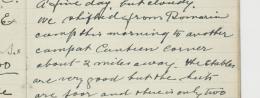 A fine day, but cloudy.
We shifted from Romarin
camp this morning to another
camp at Canteen Corner
about 2 miles away. The stables
are very good but the huts
are poor and there is only two